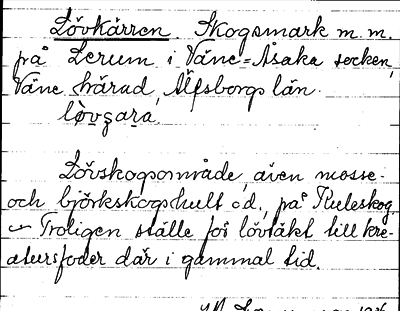 Lövkärren. Skogsmark m.m.
på Lerum i Väne=Åsaka socken,
Väne härad, Älfsborgs län.
lövʒara
Lövskogsområde, även mosse-
och björkskogshult o.d., på Ruleskog.
– Troligen ställe för lövtäkt till kre-
atursfoder där i gammal tid.